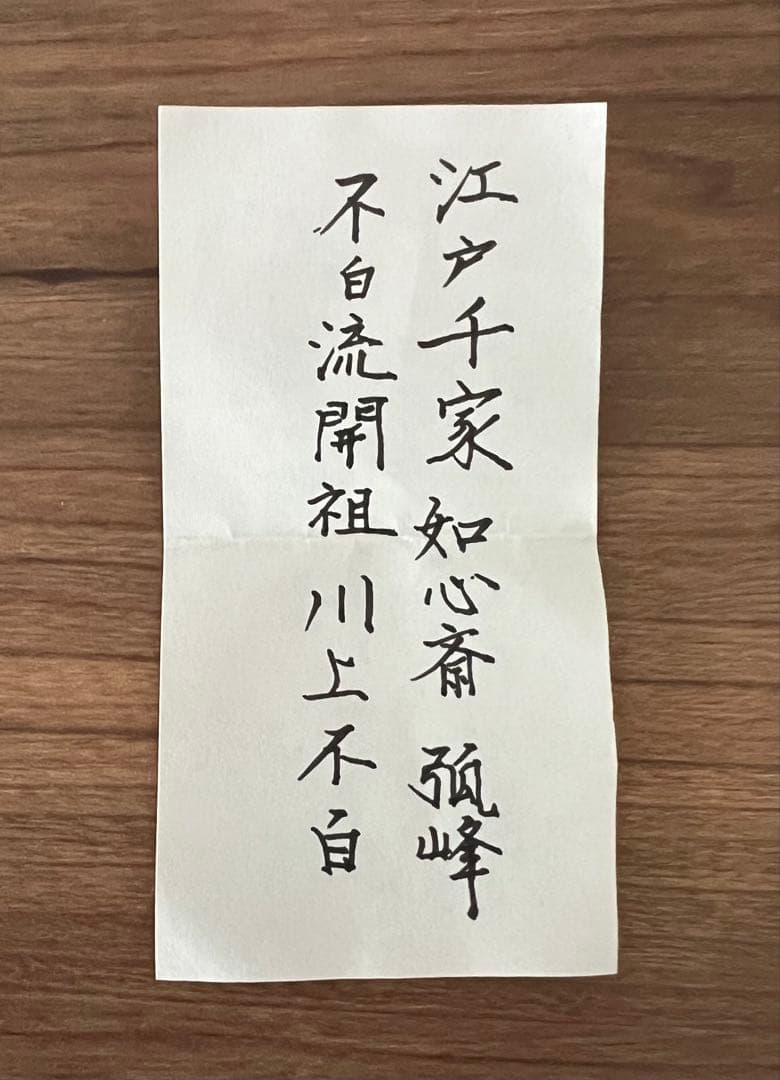 江戸千家 如心斎 弧峰
不白流開祖 川上不白